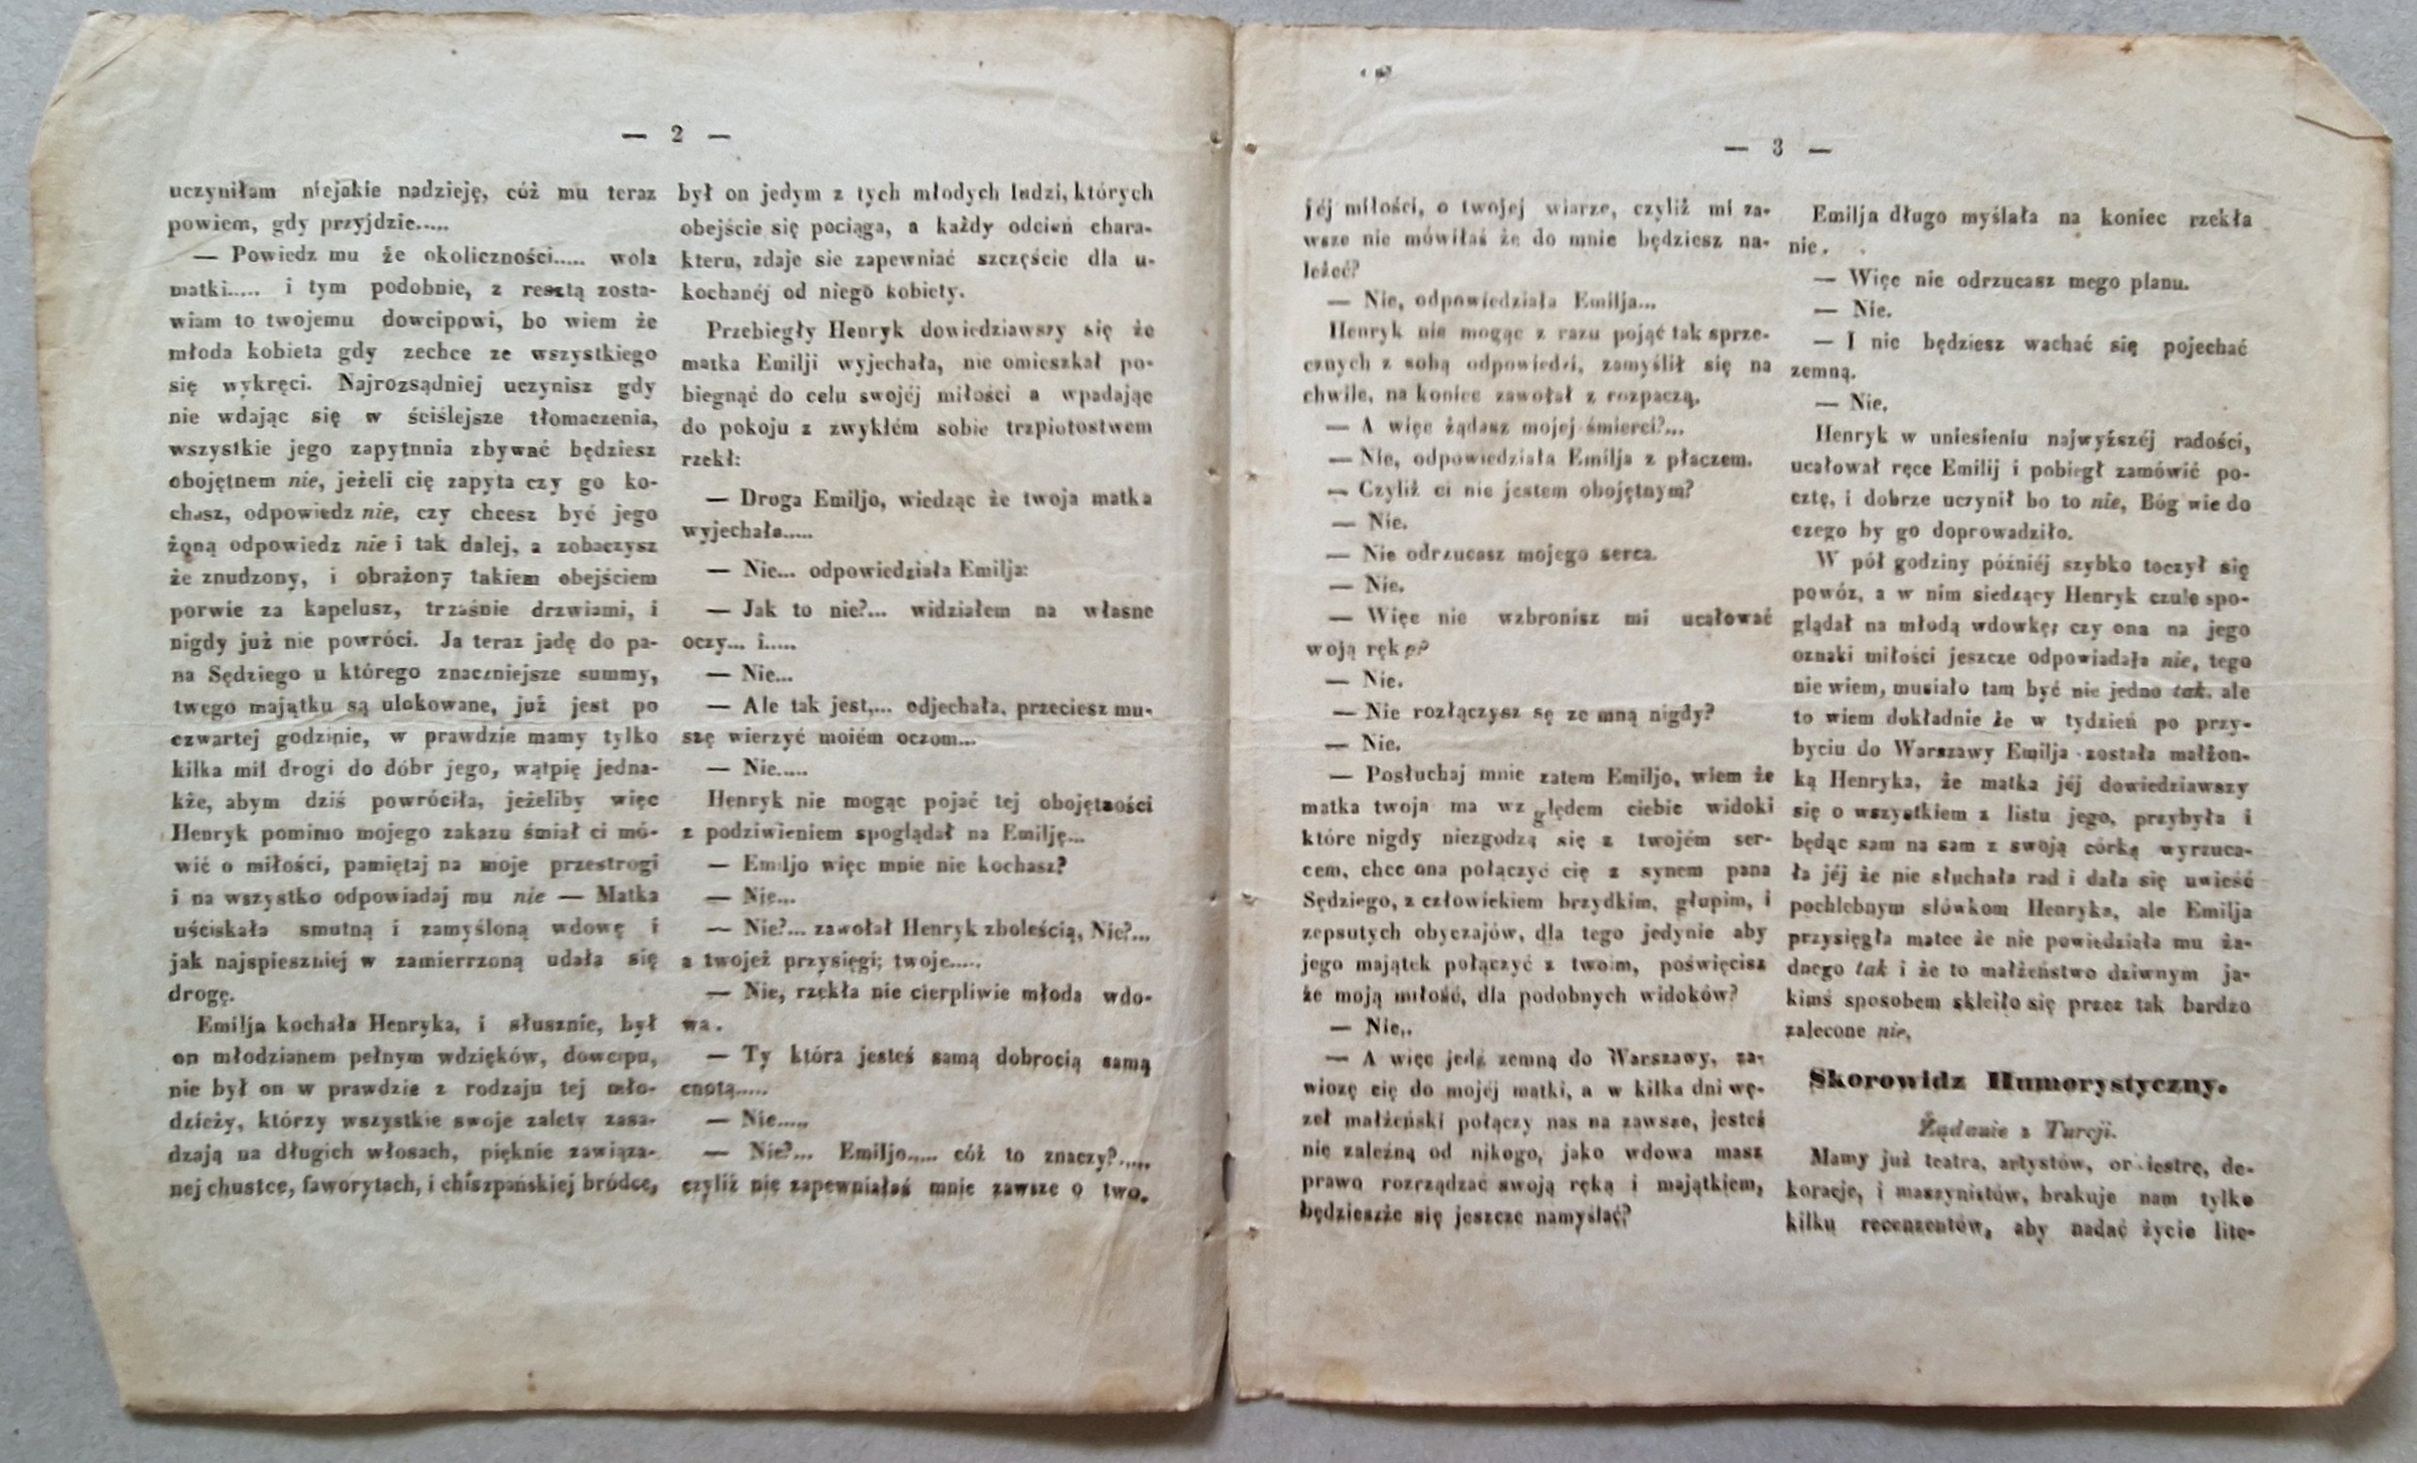 — 2 —
uczyniłam niejakie nadzieję, cóż mu teraz
powiem, gdy przyjdzie.....
— Powiedz mu że okoliczności..... wola
matki..... i tym podobnie, z resztą zosta-
wiam to twojemu dowcipowi, bo wiem że
młoda kobieta gdy zechce ze wszystkiego
się wykręci. Najrozsądniej uczynisz gdy
nie wdając się w ściślejsze tłomaczenia,
wszystkie jego zapytnnia zbywać będziesz
obojętnem nie, jeżeli cię zapyta czy go ko-
chasz, odpowiedz nie, czy chcesz być jego
żoną odpowiedz nie i tak dalej, a zobaczysz
że znudzony, i obrażony takiem obejściem
porwie za kapelusz, trzaśnie drzwiami, i
nigdy już nie powróci. Ja teraz jadę do pa-
na Sędziego u którego znaczniejsze summy,
twego majątku są ulokowane, już jest po
czwartej godzinie, w prawdzie mamy tylko
kilka mil drogi do dóbr jego, wątpię jedna-
kże, abym dziś powróciła, jeżeliby więc
Henryk pomimo mojego zakazu śmiał ci mó-
wić o miłości, pamiętaj na moje przestrogi
i na wszystko odpowiadaj mu nie — Matka
uściskała smutną i zamyśloną wdowę i
jak najspieszniej w zamierrzoną udała się
drogę.
Emilja kochała Henryka, i słusznie, był
on młodzianem pełnym wdzięków, dowcipu,
nie był on w prawdzie z rodzaju tej mło-
dzieży, którzy wszystkie swoje zalety zasa-
dzają na długich włosach, pięknie zawiąza-
nej chustce, faworytach, i chiszpańskiej bródce,
był on jedym z tych młodych ludzi, których
obejście się pociąga, a każdy odcień chara-
kteru, zdaje sie zapewniać szczęście dla u-
kochanéj od niego kobiety.
Przebiegły Henryk dowiedziawszy się że
matka Emilji wyjechała, nie omieszkał po-
biegnąć do celu swojéj miłości a wpadając
do pokoju z zwykłém sobie trzpiotostwem
rzekł:
— Droga Emiljo, wiedząc że twoja matka
wyjechała.....
— Nie... odpowiedziała Emilja:
— Jak to nie?... widziałem na własne
oczy... i.....
— Nie...
— Ale tak jest,... odjechała, przeciesz mu-
szę wierzyć moiém oczom...
— Nie.....
Henryk nie mogąc pojać tej obojętności
z podziwieniem spoglądał na Emilję...
— Emiljo więc mnie nie kochasz?
— Nie...
— Nie?... zawołał Henryk zboleścią, Nie?...
a twojeż przysięgi; twoje.....
— Nie, rzekła nie cierpliwie młoda wdo-
wa.
— Ty która jesteś samą dobrocią samą
cnotą.....
— Nie.....
— Nie?... Emiljo..... cóż to znaczy?.....
czyliż nie zapewniałaś mnie zawsze o two.
— 3 —
jéj miłości, o twojej wiarze, czyliż mi za-
wsze nie mówiłaś że do mnie będziesz na-
leżeć?
— Nie, odpowiedziała Emilja...
Henryk nie mogąc z razu pojąć tak sprze-
cznych z sobą odpowiedzi, zamyślił się na
chwile, na koniec zawołał z rozpaczą.
— A więc żądasz mojej śmierci?...
— Nie, odpowiedziała Emilja z płaczem.
— Czyliż ci nie jestem obojętnym?
— Nie.
— Nie odrzucasz mojego serca.
— Nie.
— Więc nie wzbronisz mi ucałować
woją rękę?
— Nie.
— Nie rozłączysz sę ze mną nigdy?
— Nie.
— Posłuchaj mnie zatem Emiljo, wiem że
matka twoja ma względem ciebie widoki
które nigdy niezgodzą się z twojém ser-
cem, chce ona połączyć cię z synem pana
Sędziego, z człowiekiem brzydkim, głupim, i
zepsutych obyczajów, dla tego jedynie aby
jego majątek połączyć z twoim, poświęcisz
że moją miłość, dla podobnych widoków?
— Nie,.
— A więc jedź zemną do Warszawy, za-
wiozę cię do mojéj matki, a w kilka dni wę-
zeł małżeński połączy nas na zawsze, jesteś
nie zależną od nikogo, jako wdowa masz
prawo rozrządzać swoją ręką i majątkiem,
będzieszże się jeszcze namyślać?
Emilja długo myślała na koniec rzekła
nie.
— Więc nie odrzucasz mego planu.
— Nie.
— I nie będziesz wachać się pojechać
zemną.
— Nie.
Henryk w uniesieniu najwyższéj radości,
ucałował ręce Emilij i pobiegł zamówić po-
cztę, i dobrze uczynił bo to nie, Bóg wie do
czego by go doprowadziło.
W pół godziny późniéj szybko toczył się
powóz, a w nim siedzący Henryk czule spo-
glądał na młodą wdowkę; czy ona na jego
oznaki miłości jeszcze odpowiadała nie, tego
nie wiem, musiało tam być nie jedno tak, ale
to wiem dokładnie że w tydzień po przy-
byciu do Warszawy Emilja została małżon-
ką Henryka, że matka jéj dowiedziawszy
się o wszystkiem z listu jego, przybyła i
będąc sam na sam z swoją córką wyrzuca-
ła jéj że nie słuchała rad i dała się uwieść
pochlebnym słówkom Henryka, ale Emilja
przysięgła matce że nie powiedziała mu ża-
dnego tak i że to małżeństwo dziwnym ja-
kimś sposobem skleiło się przez tak bardzo
zalecone nie.
Skorowidz Humorystyczny.
Żądanie z Turcji.
Mamy już teatra, artystów, orkiestrę, de-
koracje, i maszynistów, brakuje nam tylko
kilku recenzentów, aby nadać życie lite-